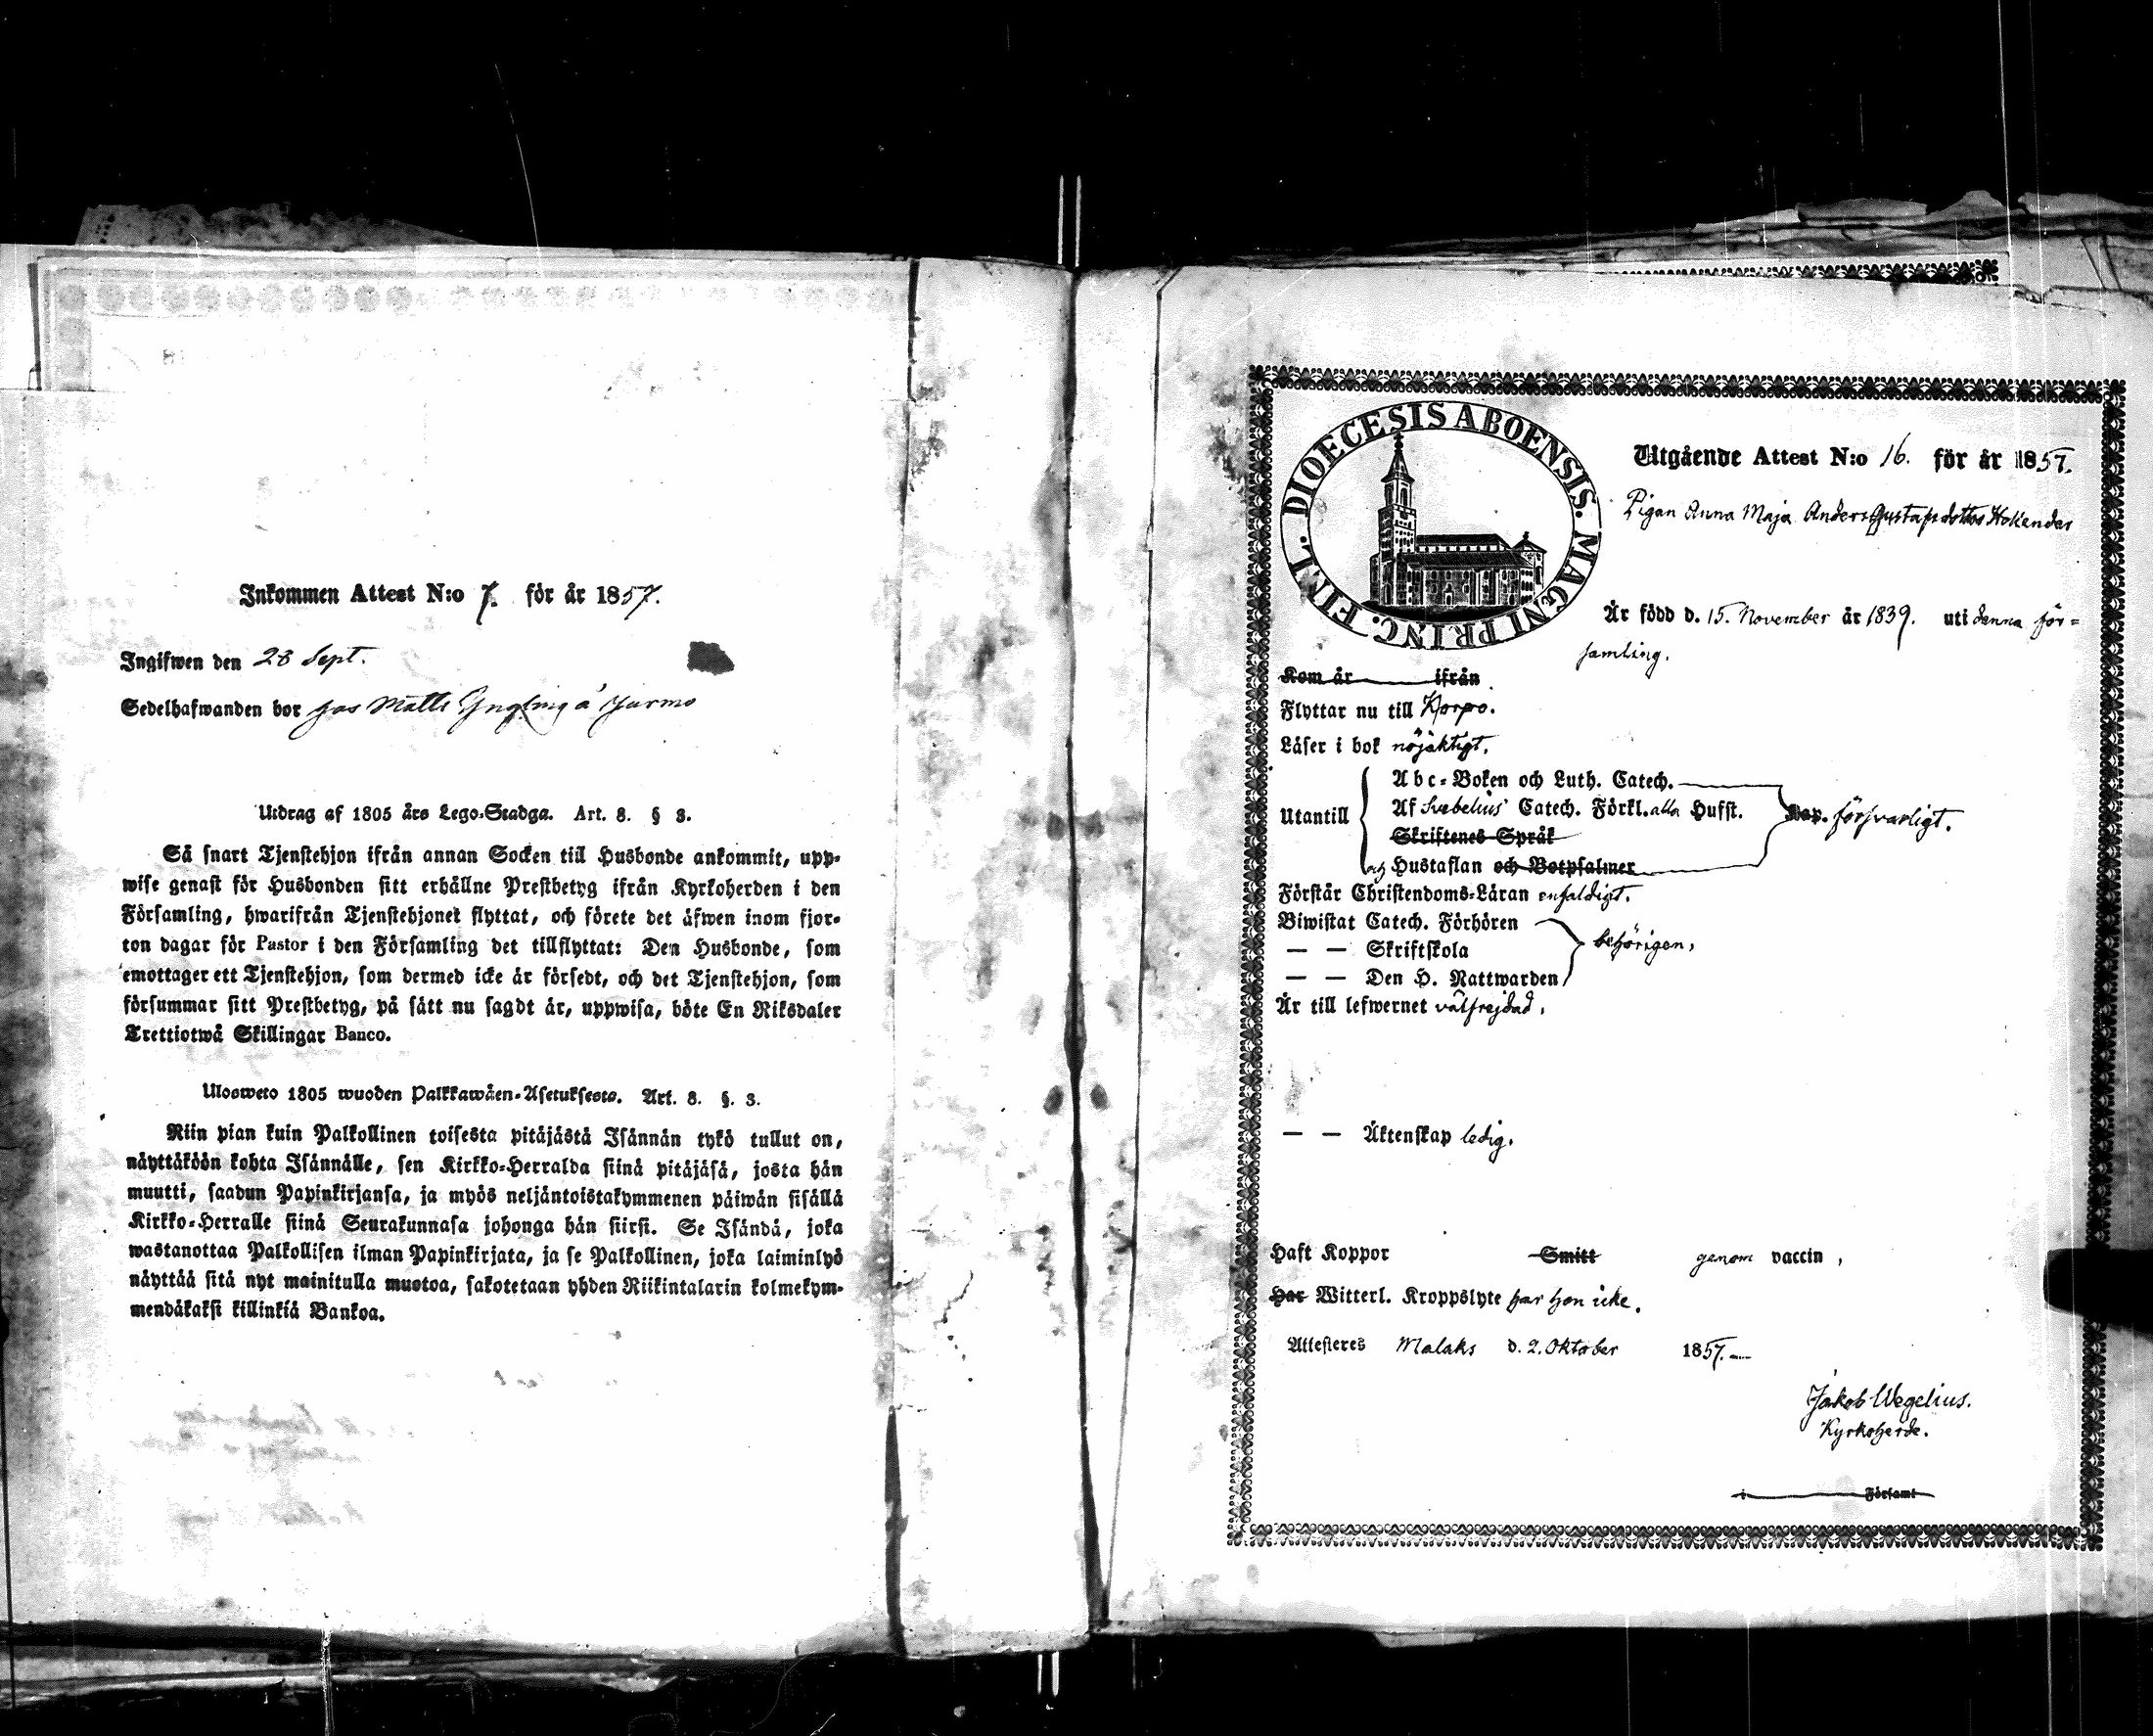 Inkommen Attest N:o 7. för år 1857.
Ingifwen den 28 Sept.
Sedelhafwanden bor hos Matts Yngling å Jurmo
Utdrag af 1805 års Lego-Stadga. Art. 8. § 3.
Så snart Tjenstehjon ifrån annan Socken till Husbonde ankommit, upp-
wise genast för Husbonden sitt erhållne Prestbetyg ifrån Kyrkoherden i den
Församling, hwarifrån Tjenstehjonet flyttat, och förete det äfwen inom fjor-
ton dagar för Pastor i den Församling det tillflyttat: Den Husbonde, som
emottager ett Tjenstehjon, som dermed icke är försedt, och det Tjenstehjon, som
försummar sitt Prestbetyg, på sätt nu sagdt är, uppwisa, böte En Riksdaler
Trettiotwå Skillingar Banco.
Ulosweto 1805 wuoden Palkkawäen-Asetuksesta. Art. 8. §. 3.
Niin pian kuin Palkollinen toisesta pitäjästä Isännän tykö tullut on,
näyttäköön kohta Isännälle, sen Kirkko-Herralda siinä pitäjäsä, josta hän
muutti, saadun Papinkirjansa, ja myös neljäntoistakymmenen päiwän sisällä
Kirkko-Herralle siinä Seurakunnasa johonga hän siirsi. Se Isändä, joka
wastanottaa Palkollisen ilman Papinkirjata, ja se Palkollinen, joka laiminlyö
näyttää sitä nyt mainitulla muotoa, sakotetaan yhden Riikintalarin kolmekym-
mendäkaksi killinkiä Bankoa.
DIOECESIS ABOENSIS. MAGNI PRINC. FINL.
Utgående Attest N:o 16. för år 1857.
Pigan Anna Maja Anders Gustafsdotter
Är född d. 15. November år 1839. uti denna för=
samling.
Kom år ifrån
Flyttar nu till Korpo.
Läser i bok nöjaktigt.
Abc=Boken och Luth. Catech.
Utantill Af Svebelius' Catech. Förkl. alla Hufst. Kap. försvarligt.
Skriftenes Språk
och Hustaflan och Botpsalmer
Förstår Christendoms=Läran enfaldigt.
Biwistat Catech. Förhören
— — Skriftskola behörigen,
— — Den H. Nattwarden
Är till lefwernet välfrejdad,
— — Äktenskap ledig.
Haft Koppor Smitt genom vaccin,
Har Witterl. Kroppslyte har hon icke.
Attesteres Malaks d. 2. Oktober 1857.
Jakob Wegelius.
Kyrkoherde.
i Församl